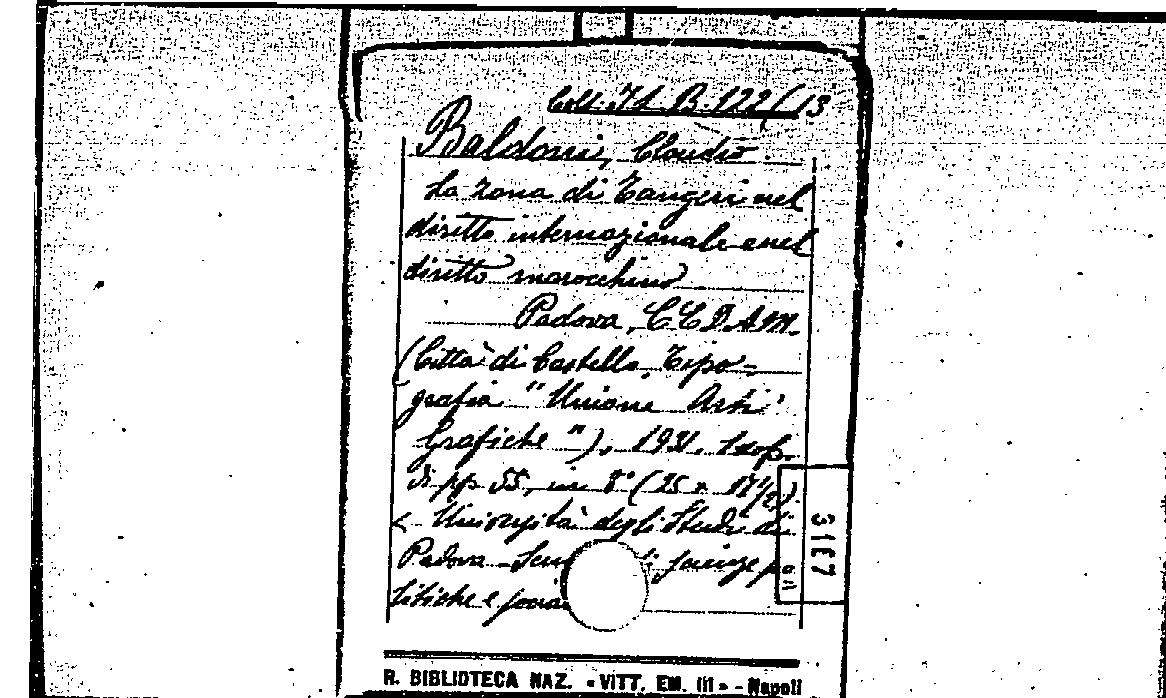 Coll. It. B. 122/13
Baldoni, Claudio
La zona di Tangeri nel
diritto internazionale e nel
diritto marocchino
Padova, C E D A M.
(Città di Castello, Tipo-
grafia "Unione Arti
Grafiche"), 1931, 1 vol.
di pp. 55, in 8° (25 x 17 1/2).
< Università degli Studi di
Padova - di scienze po
litiche e
R. BIBLIOTECA NAZ. - «VITT. EM. III» - Napoli